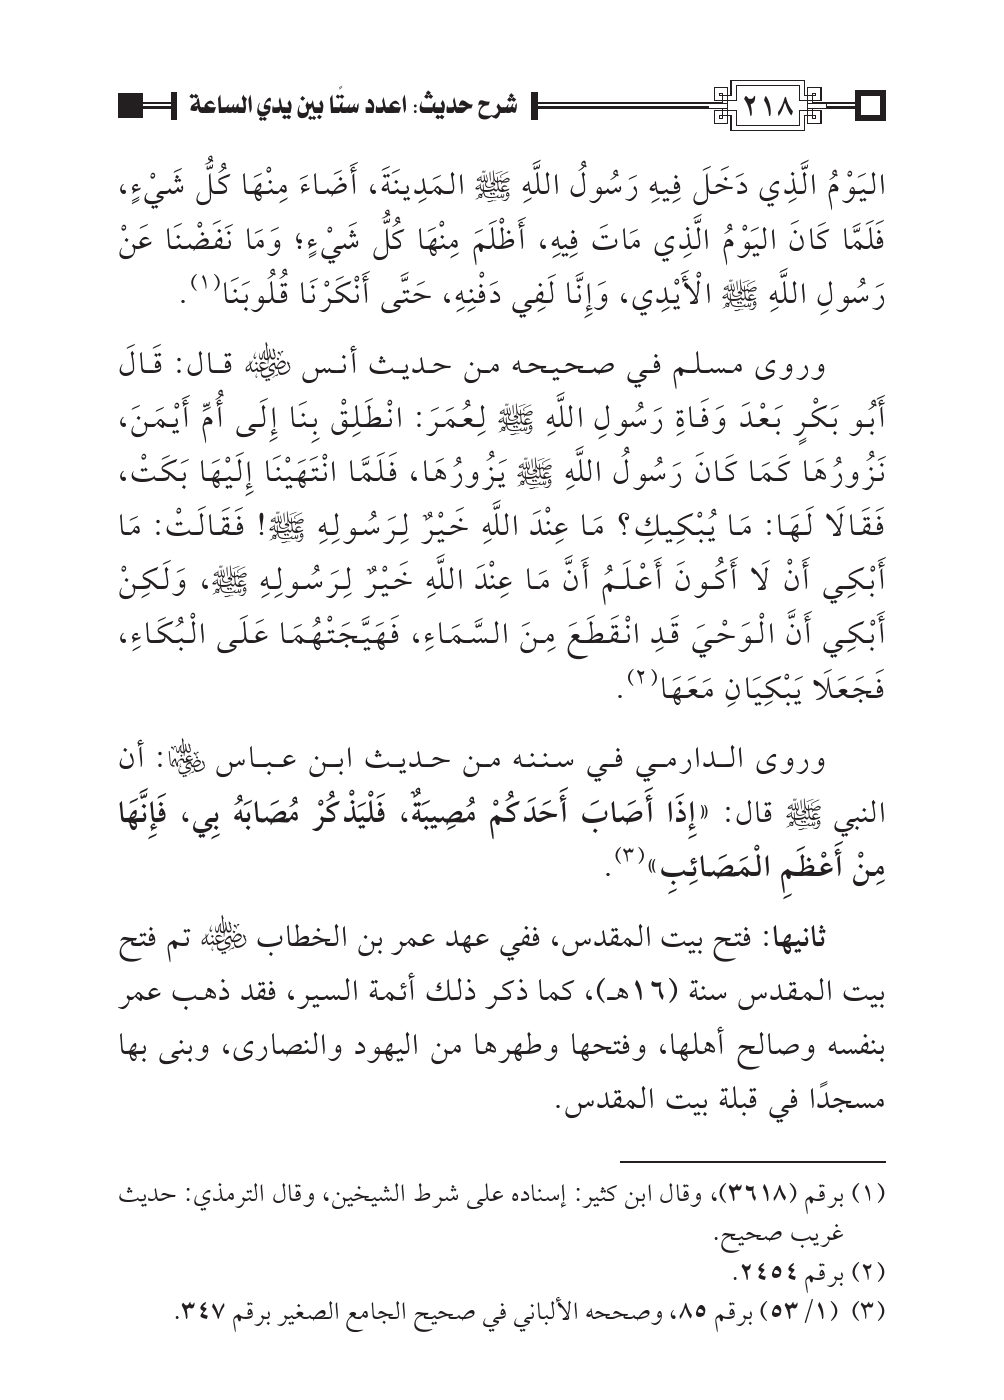 ٢١٨
شرح حديث: اعدد ستًا بين يدي الساعة
اليَوْمُ الَّذِي دَخَلَ فِيهِ رَسُولُ اللَّهِ ﷺ المَدِينَةَ، أَضَاءَ مِنْهَا كُلُّ شَيْءٍ،
فَلَمَّا كَانَ اليَوْمُ الَّذِي مَاتَ فِيهِ، أَظْلَمَ مِنْهَا كُلُّ شَيْءٍ؛ وَمَا نَفَضْنَا عَنْ
رَسُولِ اللَّهِ ﷺ الْأَيْدِي، وَإِنَّا لَفِي دَفْنِهِ، حَتَّى أَنْكَرْنَا قُلُوبَنَا(١).
وروى مسلم في صحيحه من حديث أنس رضي الله عنه قال: قَالَ
أَبُو بَكْرٍ بَعْدَ وَفَاةِ رَسُولِ اللَّهِ ﷺ لِعُمَرَ: انْطَلِقْ بِنَا إِلَى أُمِّ أَيْمَنَ،
نَزُورُهَا كَمَا كَانَ رَسُولُ اللَّهِ ﷺ يَزُورُهَا، فَلَمَّا انْتَهَيْنَا إِلَيْهَا بَكَتْ،
فَقَالَا لَهَا: مَا يُبْكِيكِ؟ مَا عِنْدَ اللَّهِ خَيْرٌ لِرَسُولِهِ ﷺ! فَقَالَتْ: مَا
أَبْكِي أَنْ لَا أَكُونَ أَعْلَمُ أَنَّ مَا عِنْدَ اللَّهِ خَيْرٌ لِرَسُولِهِ ﷺ، وَلَكِنْ
أَبْكِي أَنَّ الْوَحْيَ قَدِ انْقَطَعَ مِنَ السَّمَاءِ، فَهَيَّجَتْهُمَا عَلَى الْبُكَاءِ،
فَجَعَلَا يَبْكِيَانِ مَعَهَا(٢).
وروى الدارمي في سننه من حديث ابن عباس رضي الله عنهما: أن
النبي ﷺ قال: «إِذَا أَصَابَ أَحَدَكُمْ مُصِيبَةٌ، فَلْيَذْكُرْ مُصَابَهُ بِي، فَإِنَّهَا
مِنْ أَعْظَمِ الْمَصَائِبِ»(٣).
ثانيها: فتح بيت المقدس، ففي عهد عمر بن الخطاب رضي الله عنه تم فتح
بيت المقدس سنة (١٦هـ)، كما ذكر ذلك أئمة السير، فقد ذهب عمر
بنفسه وصالح أهلها، وفتحها وطهرها من اليهود والنصارى، وبنى بها
مسجدًا في قبلة بيت المقدس.
(١) برقم (٣٦١٨)، وقال ابن كثير: إسناده على شرط الشيخين، وقال الترمذي: حديث
غريب صحيح.
(٢) برقم ٢٤٥٤.
(٣) (١/ ٥٣) برقم ٨٥، وصححه الألباني في صحيح الجامع الصغير برقم ٣٤٧.